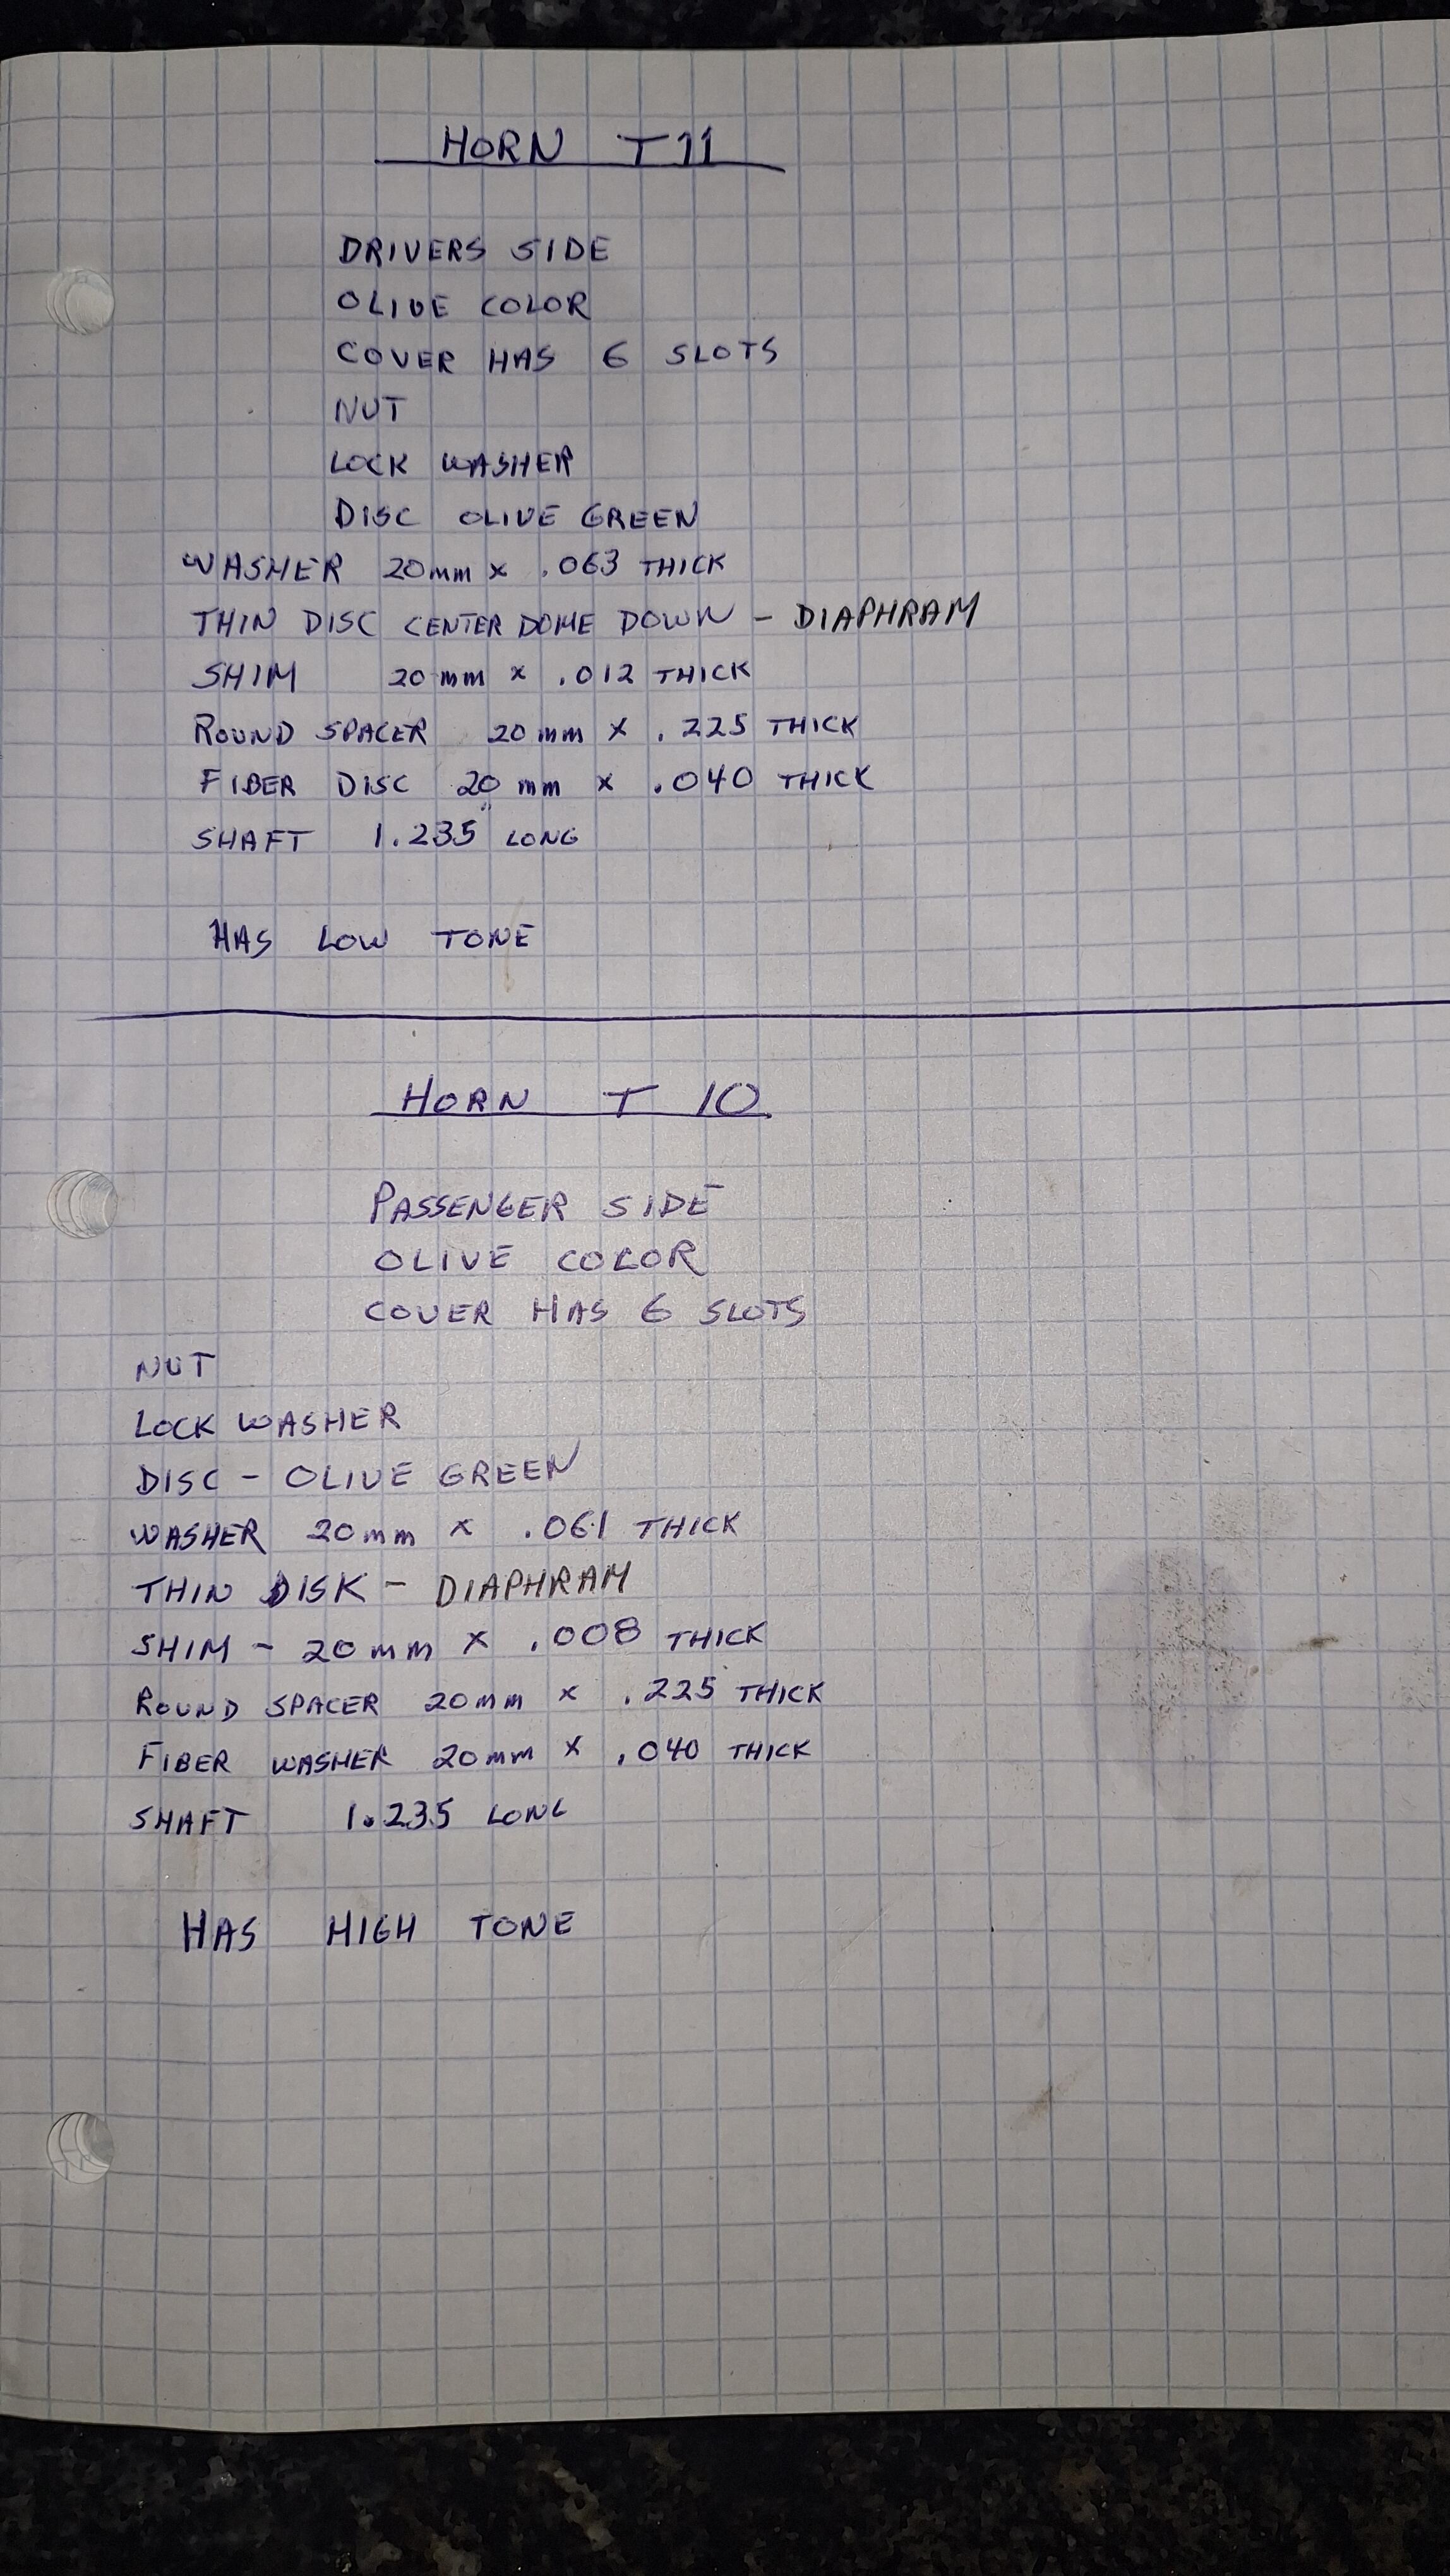 HORN T11
DRIVERS SIDE
OLIVE COLOR
COVER HAS 6 SLOTS
NUT
LOCK WASHER
DISC OLIVE GREEN
WASHER 20mm x .063 THICK
THIN DISC CENTER DOME DOWN - DIAPHRAM
SHIM 20mm x .012 THICK
ROUND SPACER 20mm x .225 THICK
FIBER DISC 20mm x .040 THICK
SHAFT 1.235" LONG
HAS LOW TONE
HORN T 10
PASSENGER SIDE
OLIVE COLOR
COVER HAS 6 SLOTS
NUT
LOCK WASHER
DISC - OLIVE GREEN
WASHER 20mm x .061 THICK
THIN DISK - DIAPHRAM
SHIM - 20mm x .008 THICK
ROUND SPACER 20mm x .225 THICK
FIBER WASHER 20mm x .040 THICK
SHAFT 1.235 LONG
HAS HIGH TONE